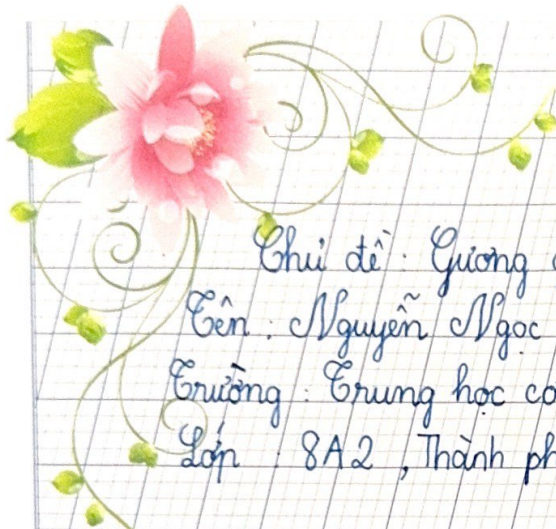 Chủ đề : Gương
Tên : Nguyễn Ngọc
Trường : Trung học cơ
Lớp : 8A2 , Thành ph